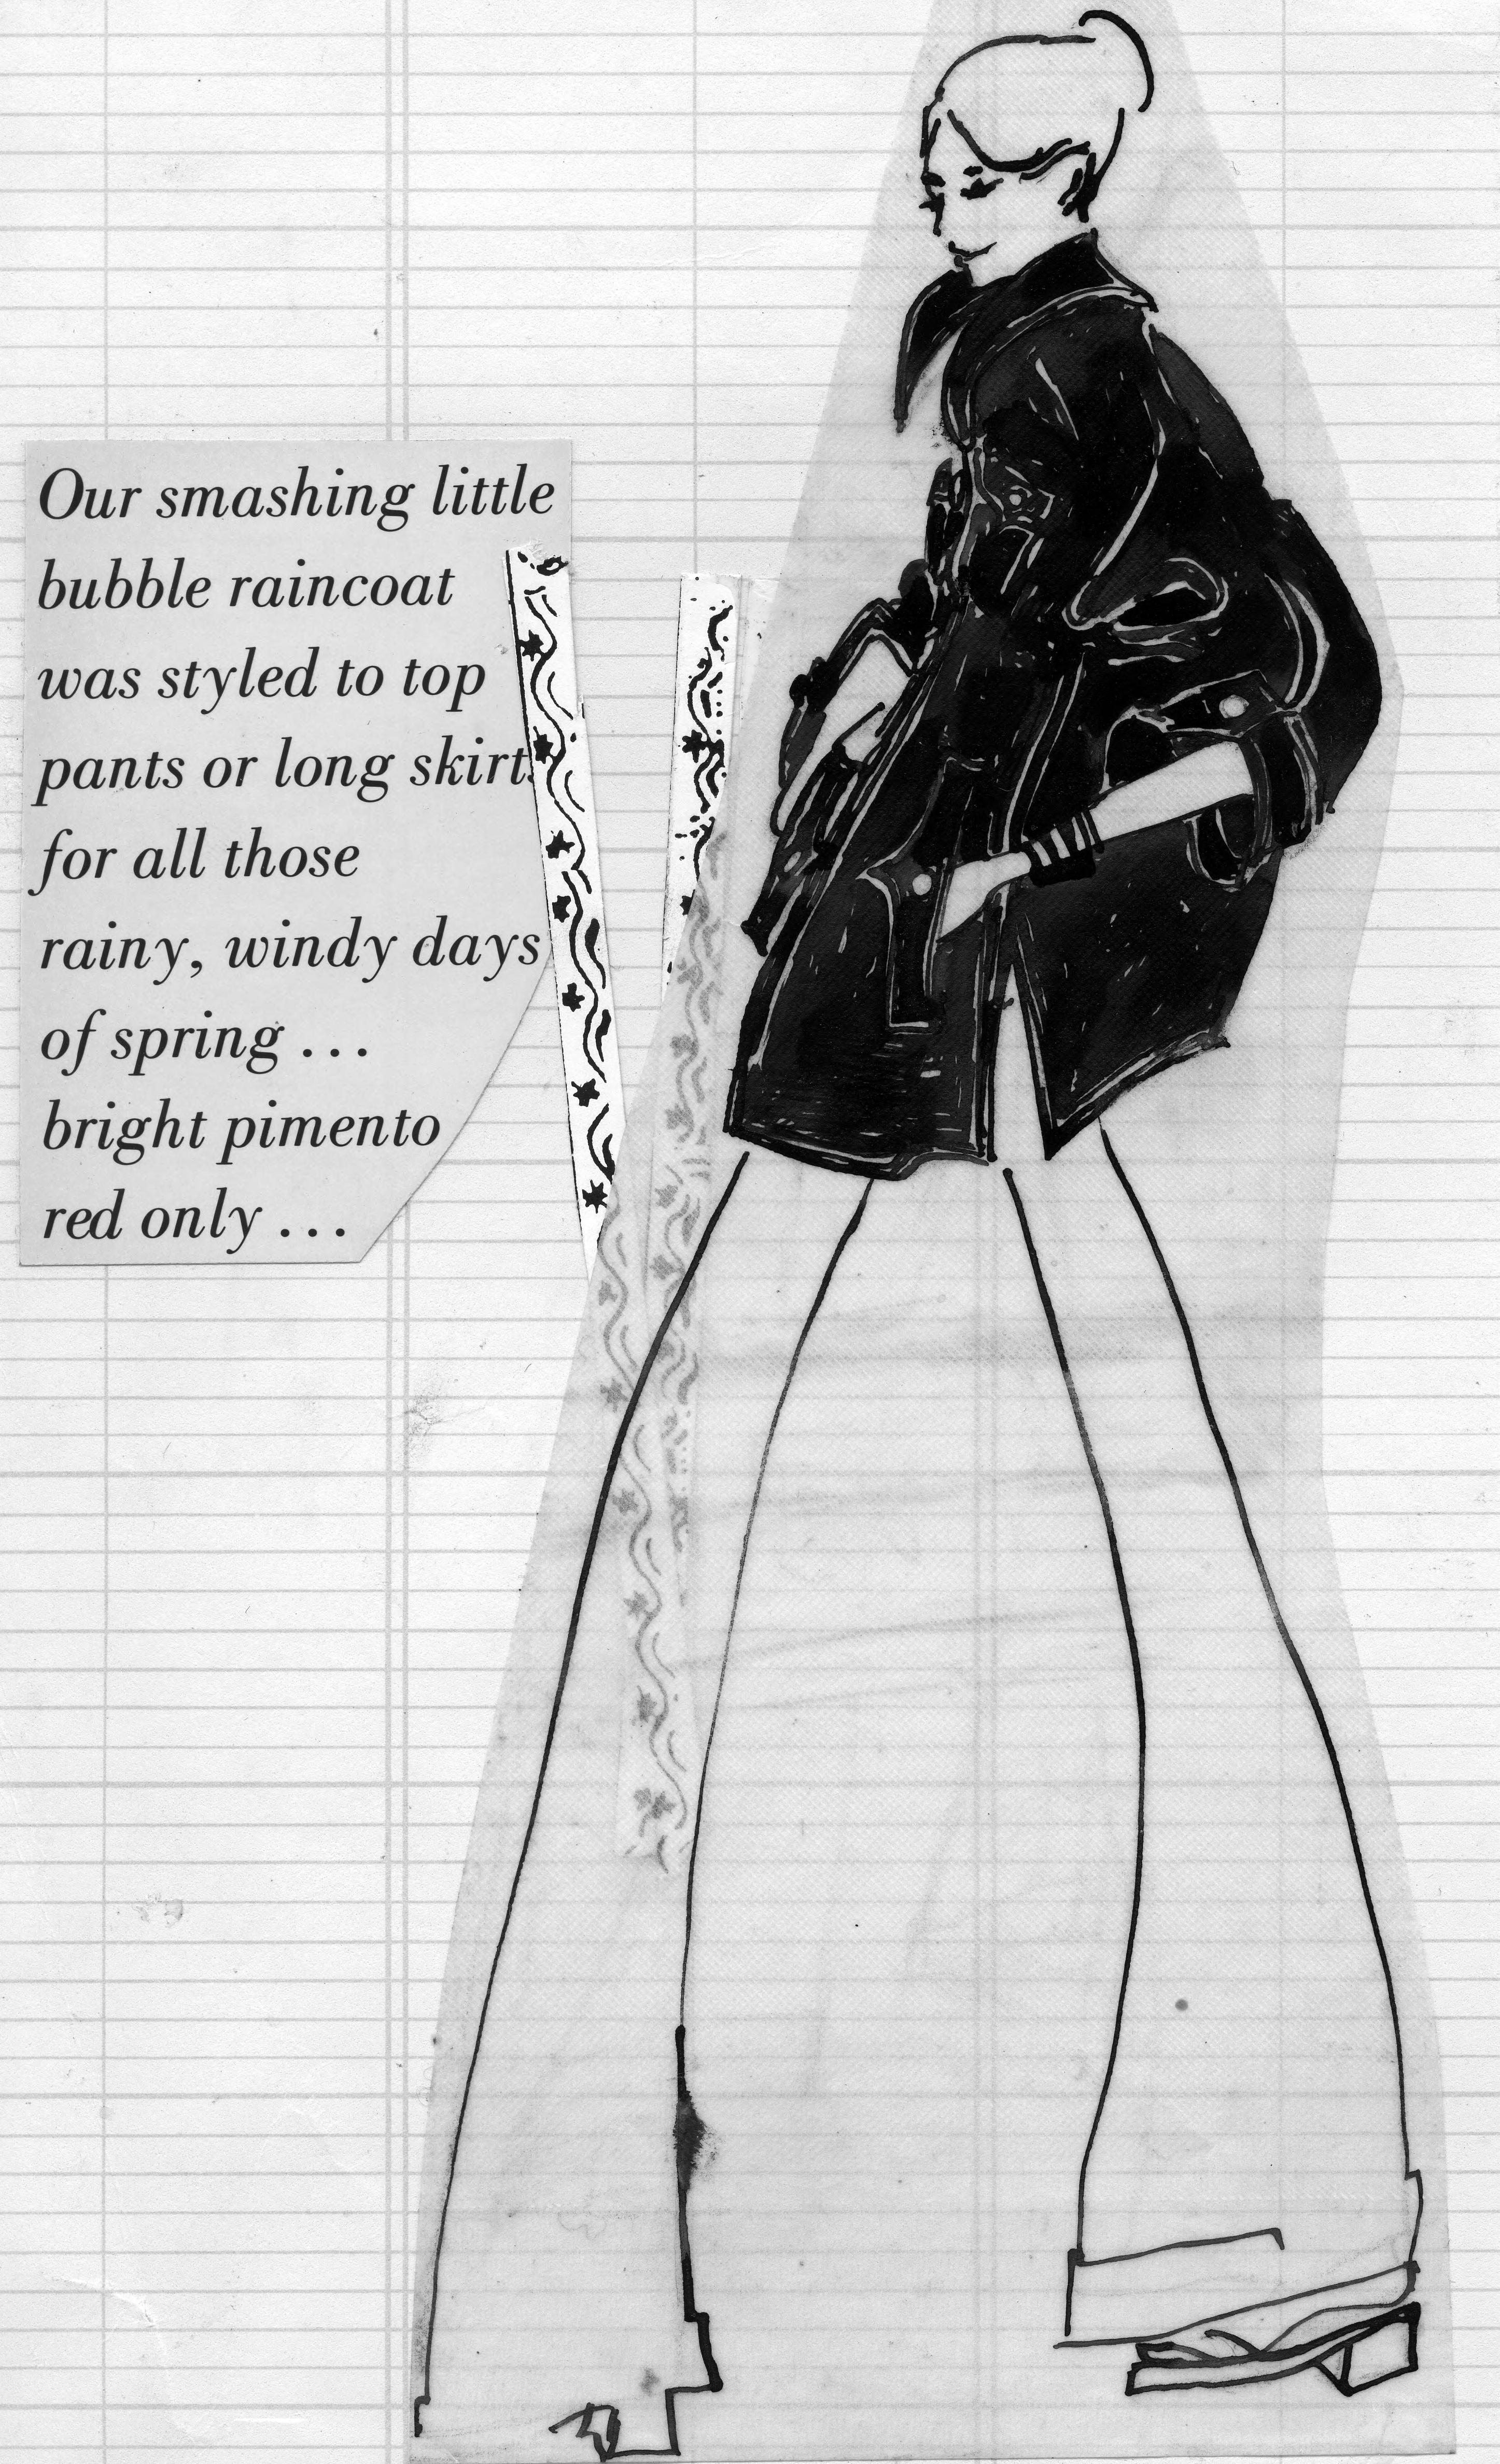 Our smashing little
bubble raincoat
was styled to top
pants or long skirts
for all those
rainy, windy days
of spring ...
bright pimento
red only ...